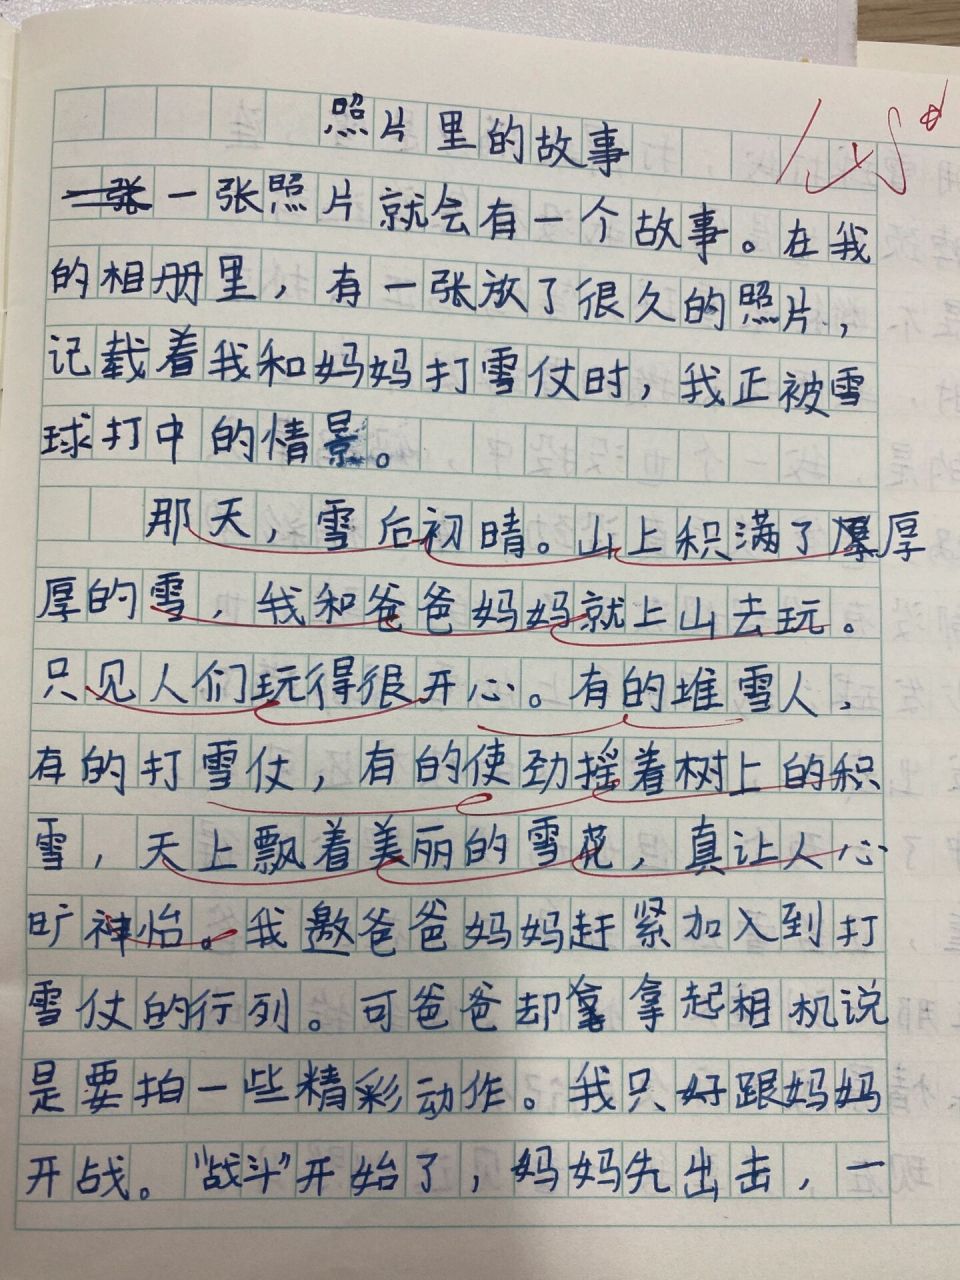 照片里的故事
一张照片就会有一个故事。在我
的相册里，有一张放了很久的照片，
记载着我和妈妈打雪仗时，我正被雪
球打中的情景。
那天，雪后初晴。山上积满了厚
厚的雪，我和爸爸妈妈就上山去玩。
只见人们玩得很开心。有的堆雪人，
有的打雪仗，有的使劲摇着树上的积
雪，天上飘着美丽的雪花，真让人心
旷神怡。我邀爸爸妈妈赶紧加入到打
雪仗的行列。可爸爸却拿起相机说
是要拍一些精彩动作。我只好跟妈妈
开战。“战斗”开始了，妈妈先出击，一